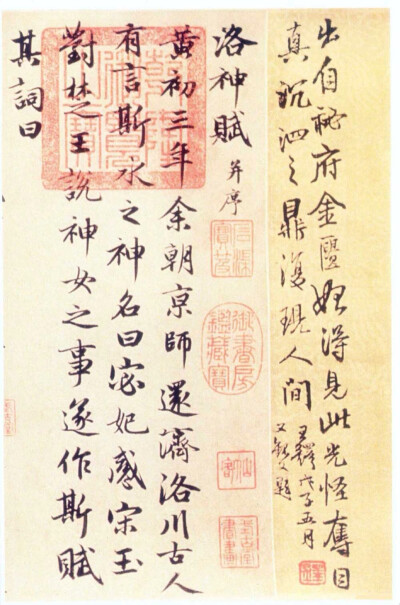 出自秘府金匱始得見此光怪奪目
真沉泗之鼎復現人間
王鐸戊子五月
又敬題
洛神賦 并序
黄初三年余朝京師還濟洛川古人
有言斯水之神名曰宓妃感宋玉
對楚王說神女之事遂作斯賦
其詞曰
御書房鑑藏寶